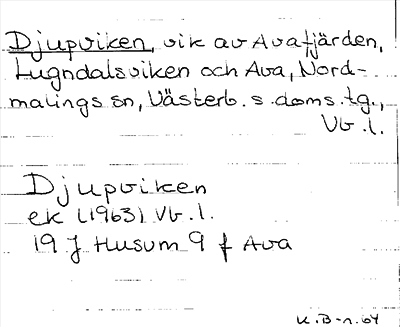 Djupviken, vik av Avafjärden,
Lugndalsviken och Ava, Nord-
malings sn, Västerb. s. doms. tg.,
Vb. l.
Djupviken
ek (1963) Vb. l.
19 J Husum 9 f Ava
K. B-n. 64